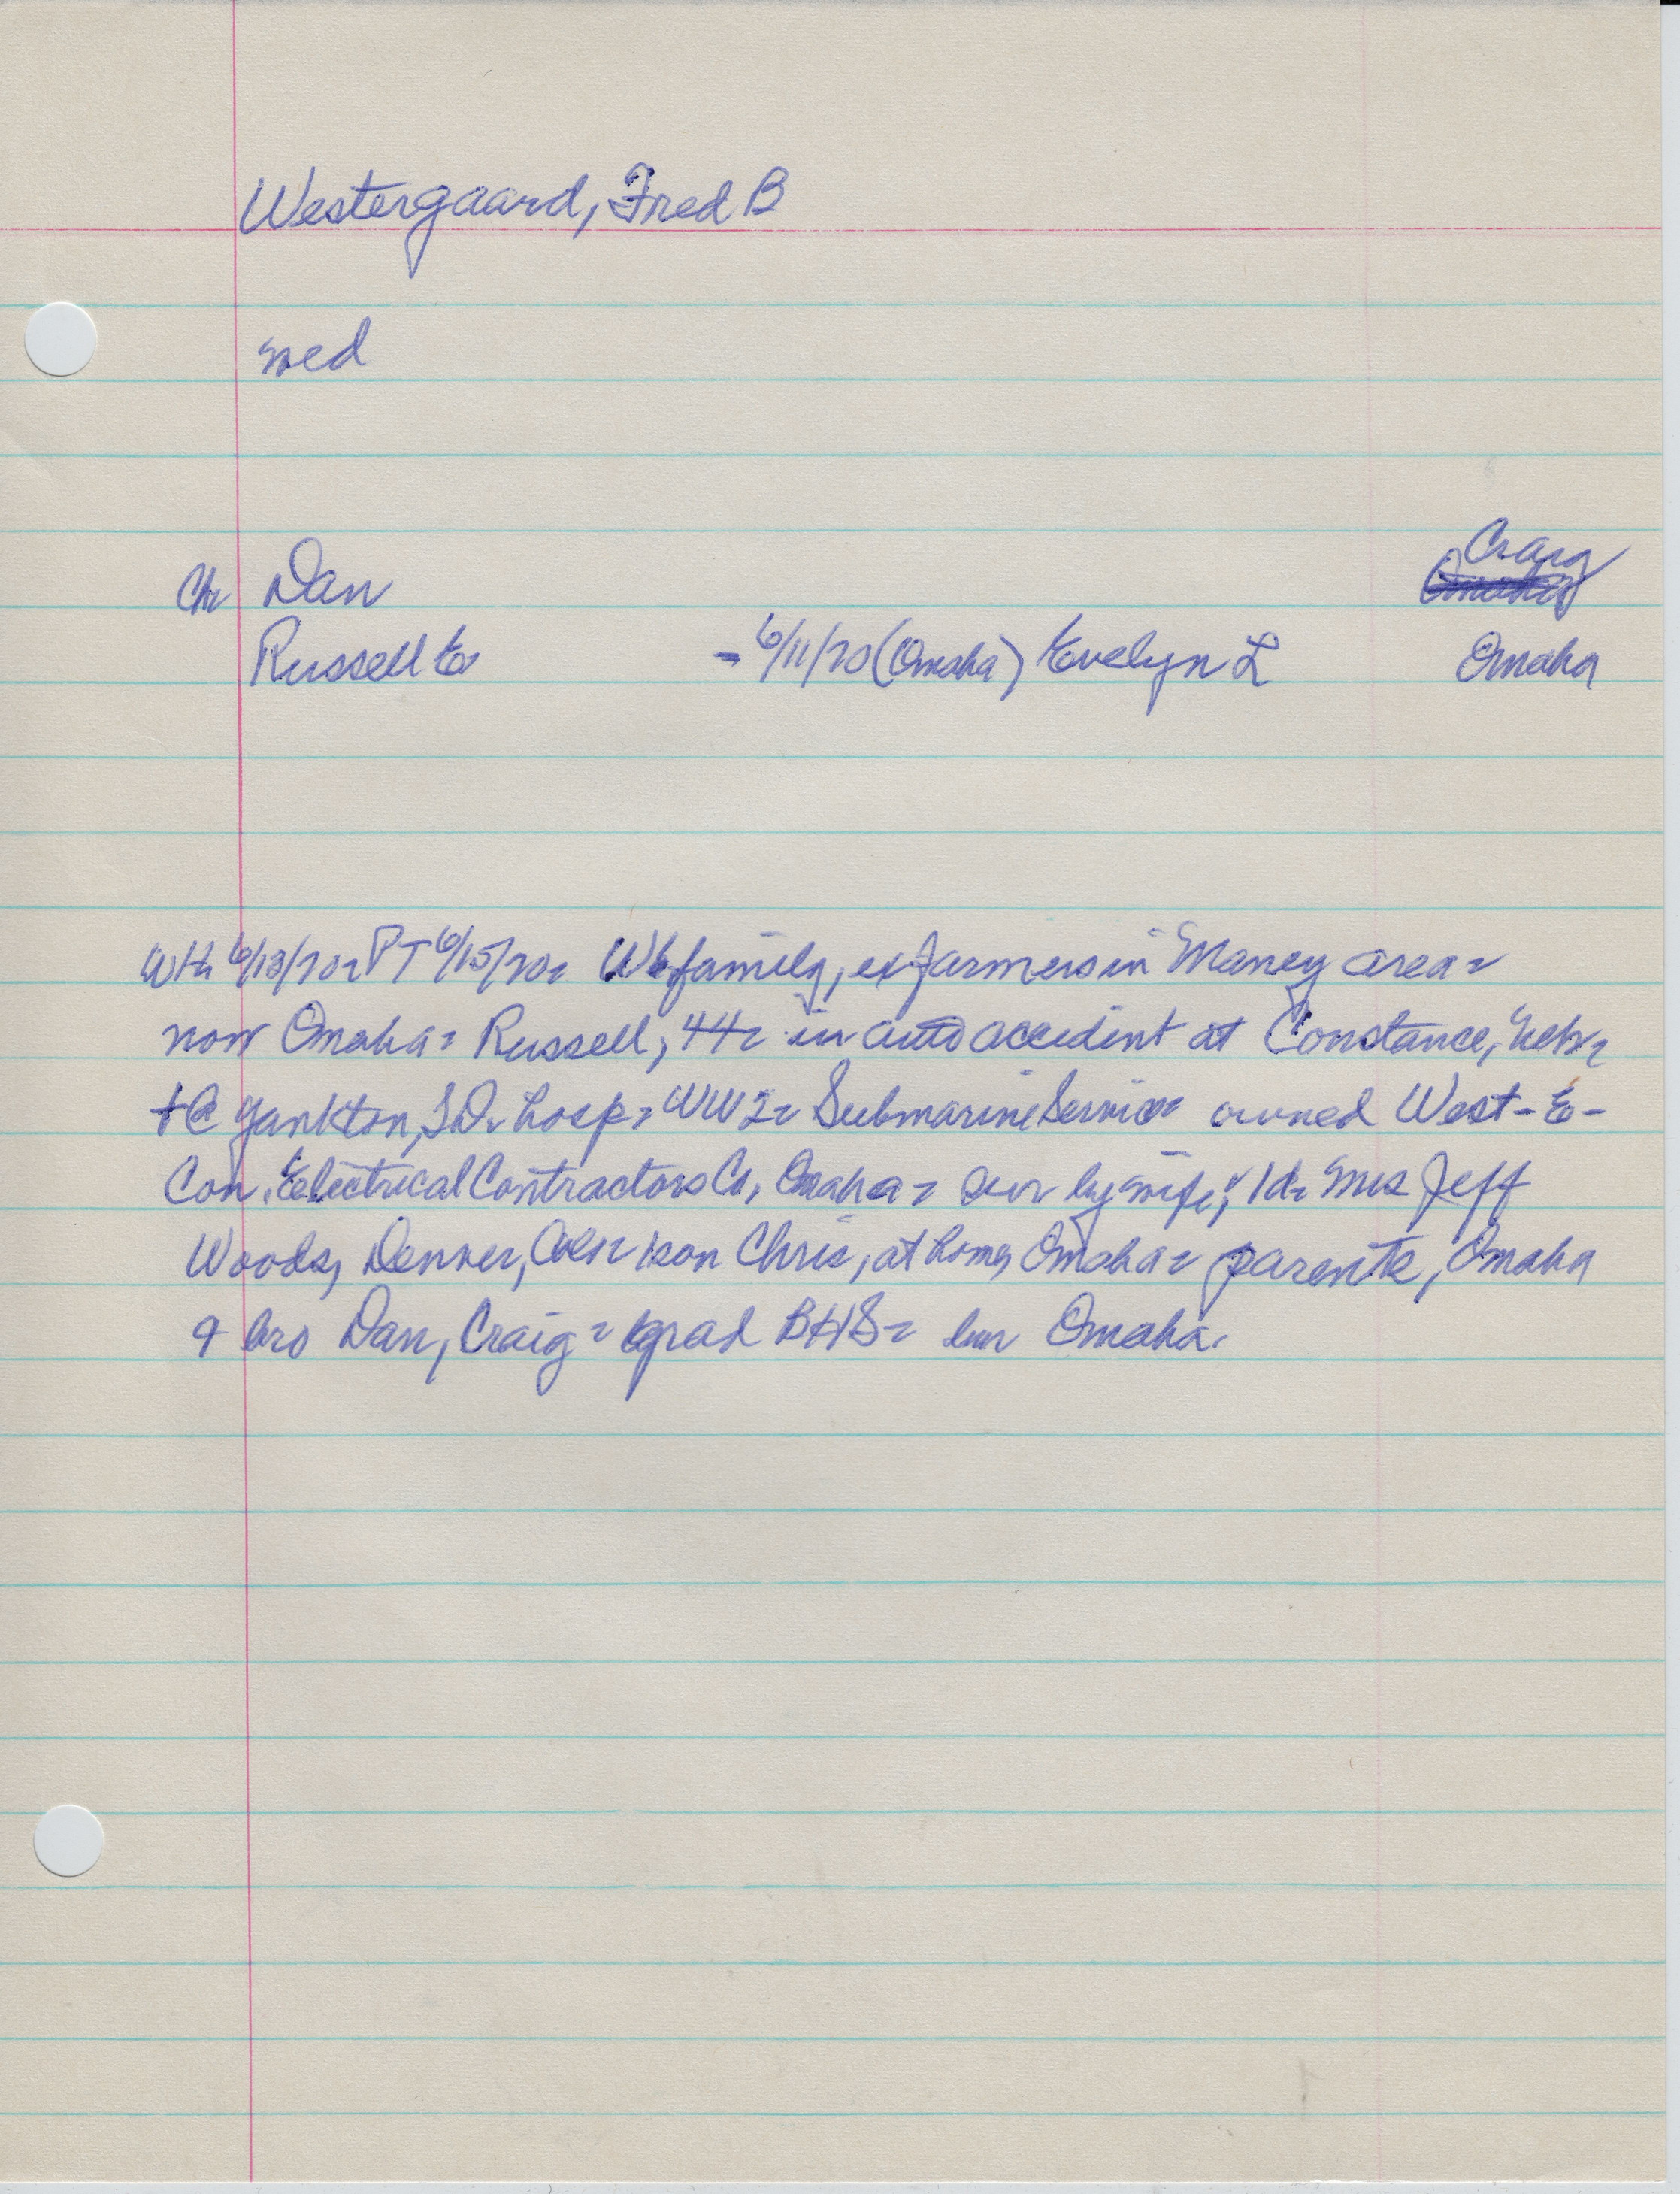 Westergaard, Fred B
med
Craig
Ch Dan Omaha
Russell E - 6/11/70 (Omaha) Evelyn L Omaha
WH 6/13/70 = PT 6/15/70 = W family, ex farmers in Maney area =
now Omaha = Russell, 44 = in auto accident at Constance, Nebr =
+ @ Yankton, SD hosp = WW2 = Submarine Service = owned West-E-
Con. Electrical Contractors Co, Omaha = sur by wife; 1d = Mrs Jeff
Woods, Denver, Colo = 1 son Chris, at home, Omaha = parents, Omaha
& bro Dan, Craig = grad BHS = bur Omaha.